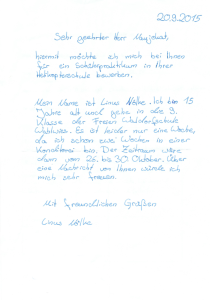 20.8.2015
Sehr geehrter Herr
hiermit möchte ich mich bei Ihnen
für ein in Ihrer
bewerben.
Mein Name ist Linus Ich bin 15
Jahre alt und gehe in die 9.
Klasse der Freien Waldorfschule
Es ist leider nur eine Woche,
da ich schon zwei Wochen in einer
Konditorei bin. Der Zeitraum wäre
dann vom 26. bis 30 Oktober. Über
eine Nachricht von Ihnen würde ich
mich sehr freuen.
Mit freundlichen Grüßen
Linus